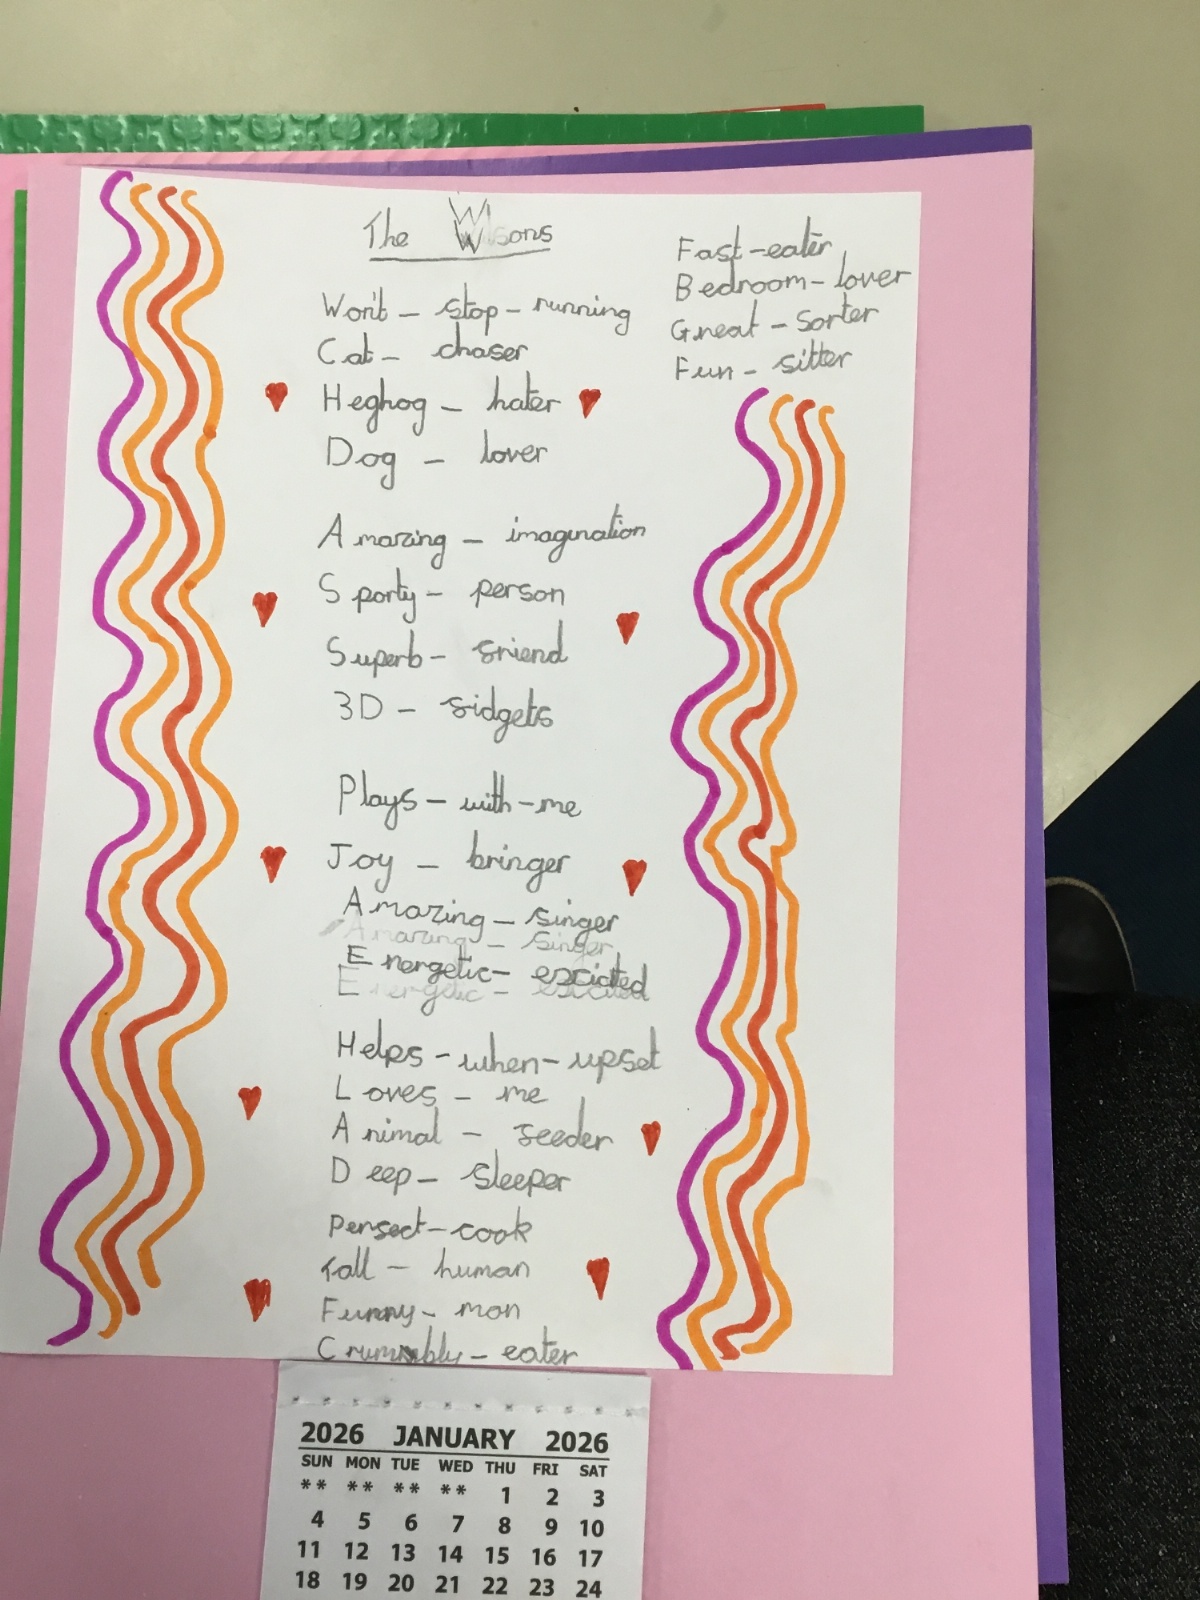 The Wilsons
Won't - stop - running
Cat - chaser
Heghog - hater
Dog - lover
Amazing - imagination
Sporty - person
Superb - friend
3D - fidgets
Plays - with - me
Joy - bringer
Amazing - singer
Amazing - singer
Energetic - excicted
Energetic - excicted
Helps - when - upset
Loves - me
Animal - feeder
Deep - sleeper
Perfect - cook
Tall - human
Funny - man
Crumbly - eater
Fast - eater
Bedroom - lover
Great - sorter
Fun - sitter
2026 JANUARY 2026
SUN MON TUE WED THU FRI SAT
** ** ** ** 1 2 3
4 5 6 7 8 9 10
11 12 13 14 15 16 17
18 19 20 21 22 23 24